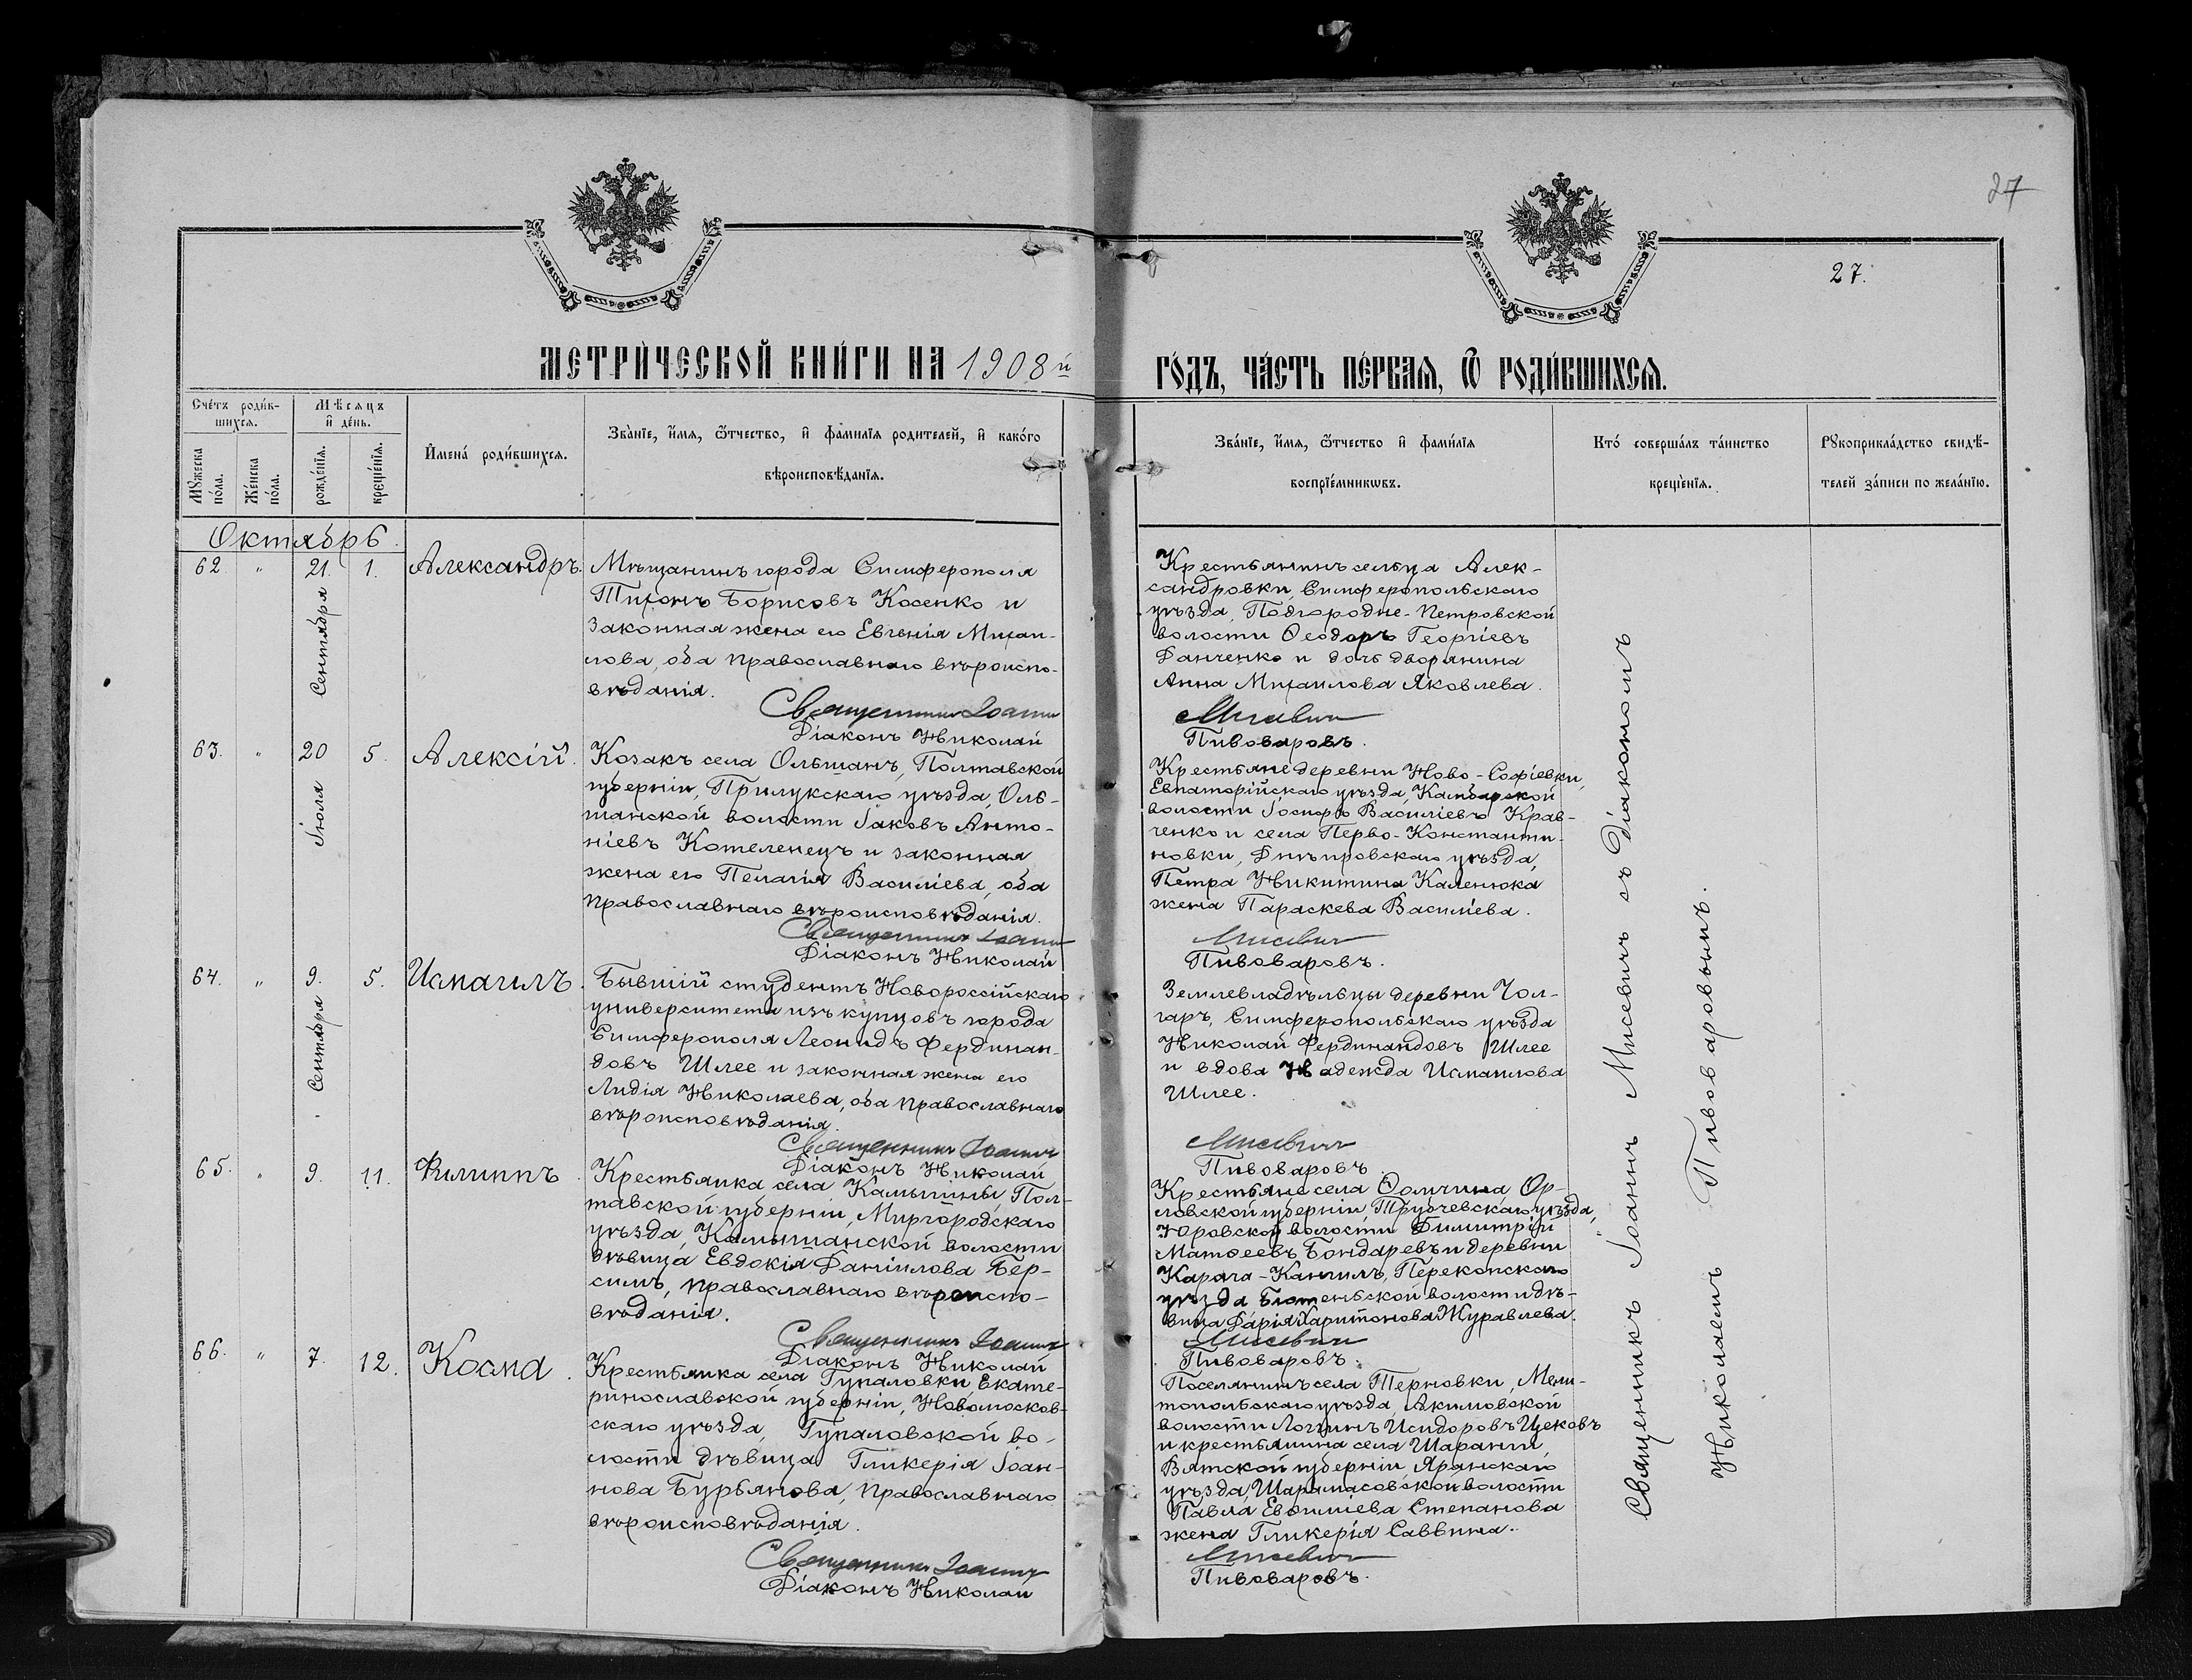 27
27.
МЕТРИ́ЧЕСКОЙ КНИ́ГИ НА 1908й ГО́ДЪ, ЧА́СТЬ ПЕ́РВАЯ, Ѿ РОДИ́ВШИХСЯ.
Сче́тъ роди́в-
шихся.
Мѣсяцъ
и҆ де́нь.
Мꙋжеска
по́ла.
Же́нска
по́ла.
рожде́нїя.
креще́нїя.
И҆мена́ роди́вшихся.
Зва́нїе, и҆́мя, ѻ҆́тчество, и҆ фамилїя родителей, и҆ како́го
вѣроисповѣ́данїя.
Зва́нїе, и҆́мя, ѻ҆́тчество и҆ фами́лїя
воспрїе́мникѡвъ.
Кто́ соверша́лъ та́инство
креще́нїя.
Рꙋкоприкла́дство свидѣ́-
телей за́писи по жела́нїю.
Октябрь.
62. " 21. 1. Александръ.
Сентября
Мѣщанинъ города Симферополя
Тихонъ Борисовъ Косенко и
законная жена его Евгенія Михаи-
лова, оба православнаго вѣроиспо-
вѣданія.
Священникъ Іоаннъ
Діаконъ Николай
Крестьянинъ сельца Алек-
сандровки, Симферопольскаго
уѣзда, Подгородне-Петровской
волости Ѳеодоръ Георгіевъ
Данченко и дочь дворянина
Анна Михаилова Яковлева.
Мисевичъ
Пивоваровъ.
63. " 20 5. Алексій.
Іюля
Козакъ села Ольшанъ, Полтавской
губерніи, Прилукскаго уѣзда, Оль-
шанской волости Іаковъ Анто-
ніевъ Котеленецъ и законная
жена его Пелагія Василіева, оба
православнаго вѣроисповѣданія.
Священникъ Іоаннъ
Діаконъ Николай
Крестьяне деревни Ново-Софіевки,
Евпаторійскаго уѣзда, Камбарской
волости Іосифъ Василіевъ Крав-
ченко и села Перво-Константи-
новки, Днѣпровскаго уѣзда,
Петра Никитина Каленюка
жена Параскева Василіева.
Мисевичъ
Пивоваровъ.
64. " 9. 5. Исмаилъ.
Сентября
Бывшій студентъ Новороссійскаго
университета изъ купцовъ города
Симферополя Леонидъ Фердинан-
довъ Шлее и законная жена его
Лидія Николаева, оба православнаго
вѣроисповѣданія.
Священникъ Іоаннъ
Діаконъ Николай
Землевладѣльцы деревни Чол-
гаръ, Симферопольскаго уѣзда
Николай Фердинандовъ Шлее
и вдова Надежда Исмаилова
Шлее.
Мисевичъ
Пивоваровъ
65. " 9. 11. Филиппъ.
Крестьянка села Камышны, Пол-
тавской губерніи, Миргородскаго
уѣзда, Камышанской волости
дѣвица Евдокія Даніилова Бер-
силь, православнаго вѣроиспо-
вѣданія.
Священникъ Іоаннъ
Діаконъ Николай
Крестьяне села Ор-
ловской губерніи, Трубчевскаго уѣзда,
Юровской волости Димитрій
Матѳеевъ Бондаревъ и деревни
Карача-Кангилъ, Перекопскаго
уѣзда волости дѣ-
вица Дарія Харитонова Журавлева.
Мисевичъ
Пивоваровъ.
66. " 7. 12. Косма.
Крестьянка села Гупаловки, Екате-
ринославской губерніи, Новомосков-
скаго уѣзда, Гупаловской во-
лости дѣвица Гликерія Іоан-
нова Бурьянова, православнаго
вѣроисповѣданія.
Священникъ Іоаннъ
Діаконъ Николай
Поселянинъ села Терновки, Мели-
топольскаго уѣзда, Акимовской
волости Логгинъ Исидоровъ Цековъ
и крестьянина села Шаранги,
Вятской губерніи Яранскаго
уѣзда, волости
Павла Евѳиміева Степанова
жена Гликерія Саввина.
Мисевичъ
Пивоваровъ.
Священникъ Іоаннъ Мисевичъ съ Діакономъ
Николаемъ Пивоваровымъ.